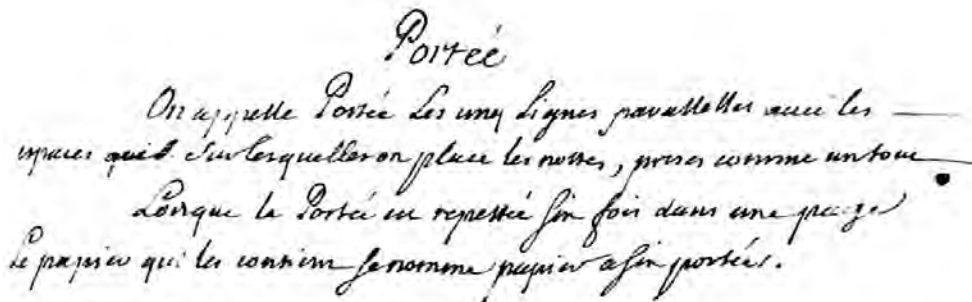 Portée
On appelle Portée Les cinq Lignes paralleles avec les
espaces sur lesquelles on place les nottes, prises comme un tout
Lorsque la Portée est repetée six fois dans une page
Le papier qui les contient se nomme papier a six portées.